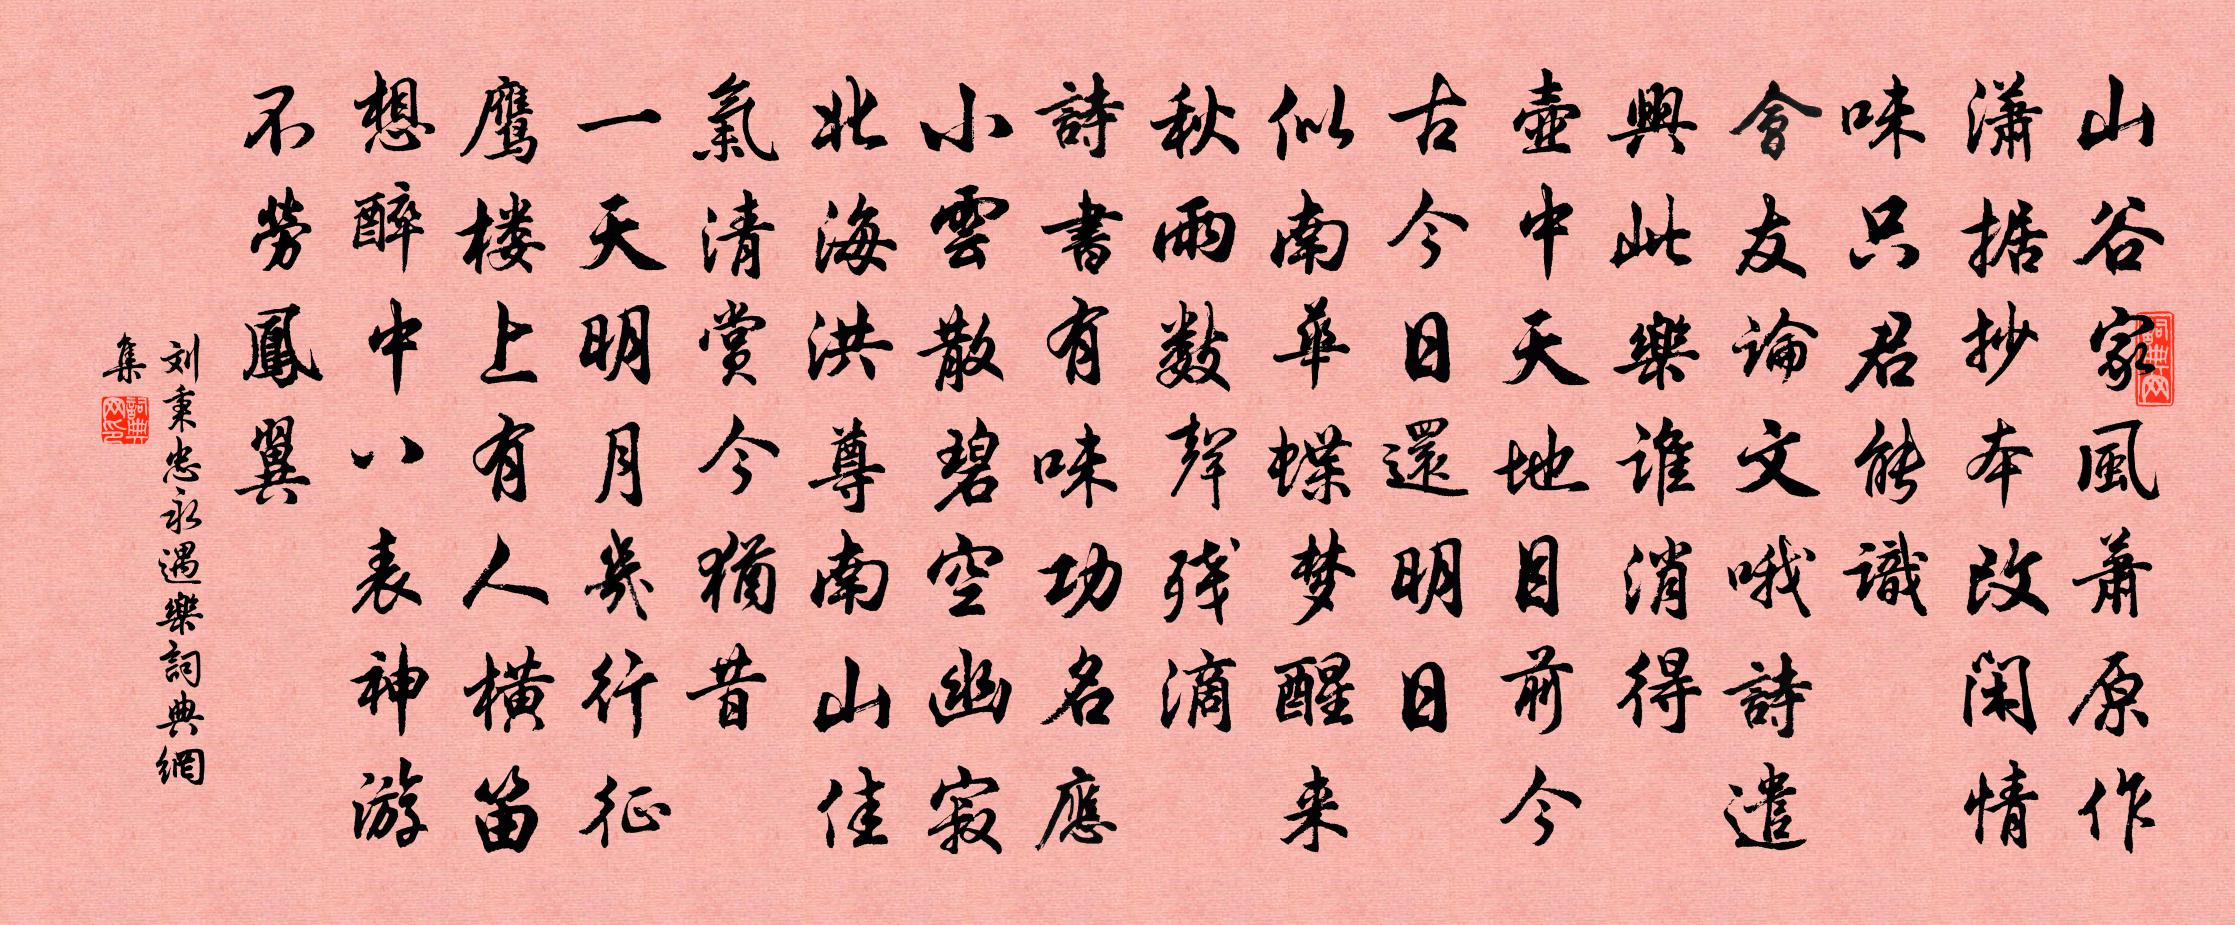 山谷家風萧原作
潇据抄本改闲情
味只君能識
會友論文哦詩遣
興此樂誰消得
壺中天地目前今
古今日還明日
似南華蝶梦醒来
秋雨数聲残滴
詩書有味功名應
小雲散碧空幽寂
北海洪尊南山佳
氣清賞今猶昔
一天明月幾行征
鹰楼上有人橫笛
想醉中八表神游
不勞鳳翼
刘秉忠永遇樂詞典網
集
詞典网
詞典网印